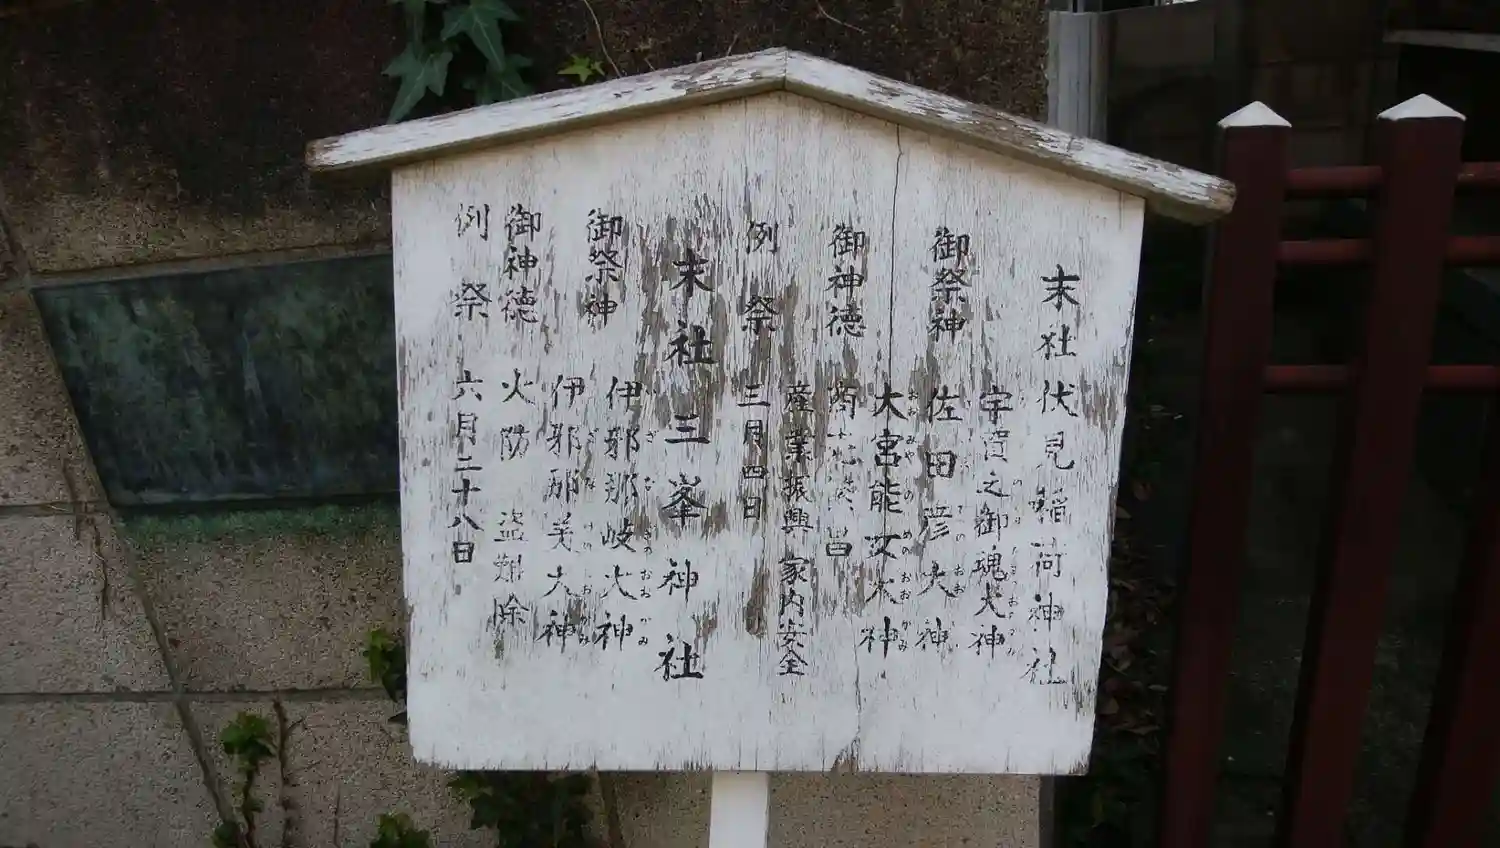 末社伏見稲荷神社
御祭神 宇賀之御魂大神
佐田彦大神
大宮能女大神
御神徳 商売繁昌
産業振興 家内安全
例祭 三月四日
末社三峯神社
御祭神 伊邪那岐大神
伊邪那美大神
御神徳 火防 盗難除
例祭 六月二十八日